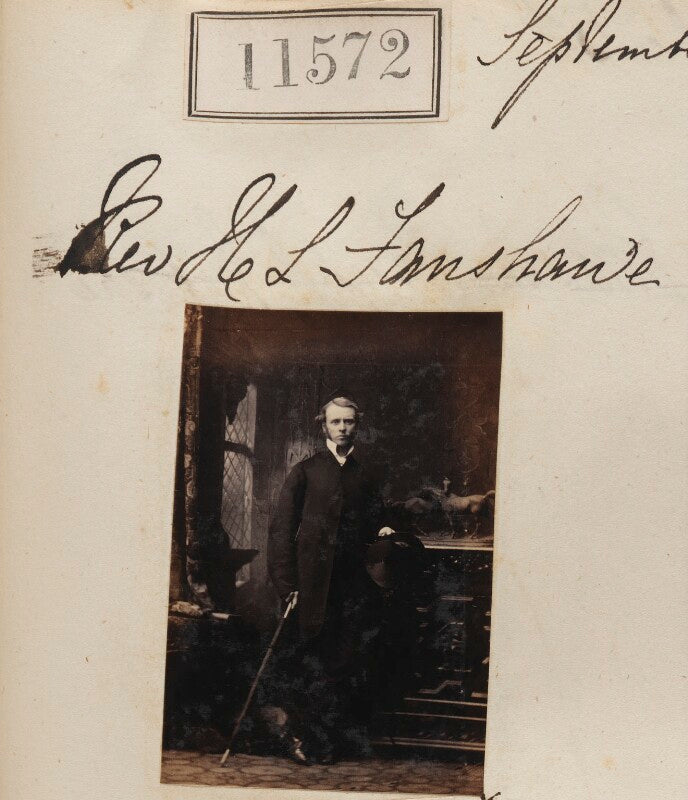 11572
Septemb
Rev H L Fanshawe